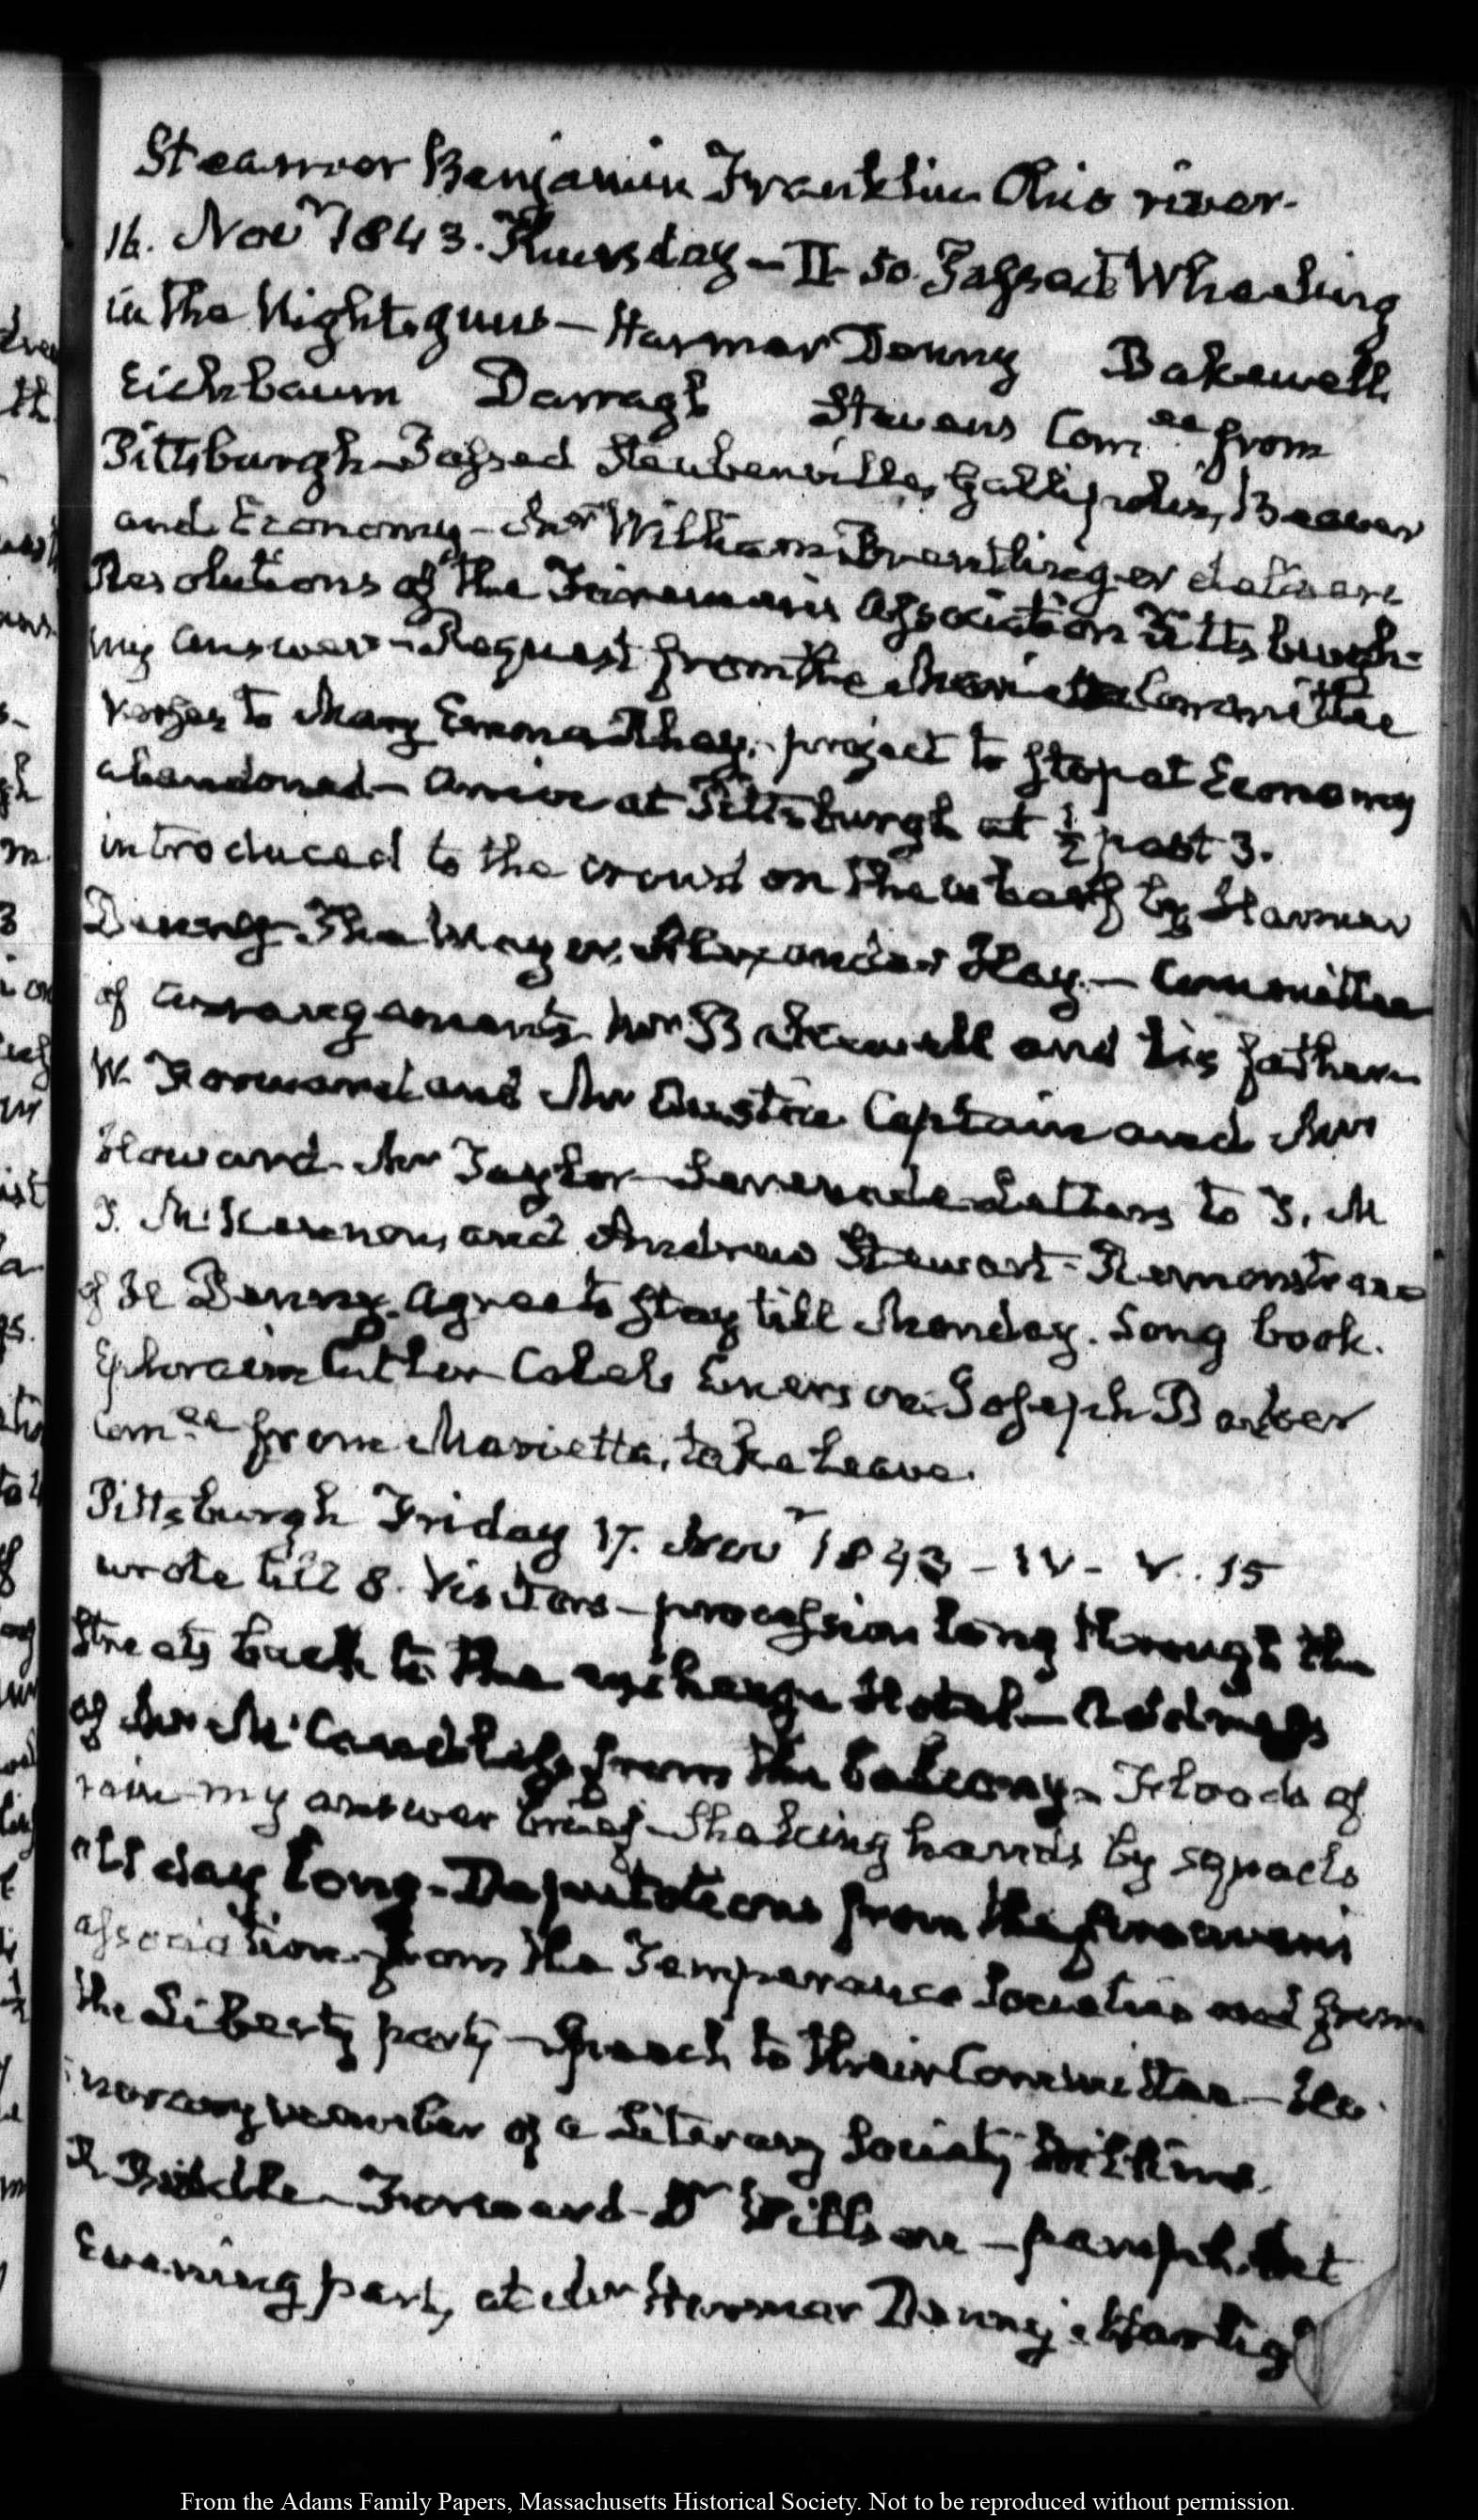 Steamer Benjamin Franklin Ohio river.
16. Novr 1843. Thursday – II. 50. Passed Wheeling
in the Night, guns – Harmar Denny Bakewell
Eichbaum Darragh Stevens Comee from
Pittsburgh – Passed Steubenville, Gallipolis, Beaver
and Economy – Mr William delivers
Resolutions of the Firemen's Association Pittsburgh –
my answer – Request from the Marietta Committee
verses to Mary Emma Shay, – project to stop at Economy
abandoned – Arrive at Pittsburgh at ½ past 3.
introduced to the crowd on the wharf by Harmar
Denny – The Mayor, Alexander Hay. – Committee
of arrangements Mr Bakewell and his father
W. Forward and Mr Austin Captain and Mrs
Howard – Mr Taylor – Serenade – Letters to T. M
T. McKennan, and Andrew Stewart – Remonstrance
of H Denny. Agree to stay till Monday. Song book.
Ephraim Cutler Caleb Emerson Joseph Barker
Comee from Marietta, take leave.
Pittsburgh Friday 17. Novr 1843 – IV – V. 15
wrote till 8. Visitors – procession long through the
Streets back to the exchange Hotel – Address
of Mr McCandless from the balcony – Floods of
rain – my answer brief – Shaking hands by squads
all day long – Deputations from the firemens
association – from the Temperance Societies and from
the Liberty party – Speech to their Committee – Ho
norary member of a Literary Society
R. Biddle – Forward – Dr Willson – pamphlet
Evening party at Mr Harmar Denny's
From the Adams Family Papers, Massachusetts Historical Society. Not to be reproduced without permission.